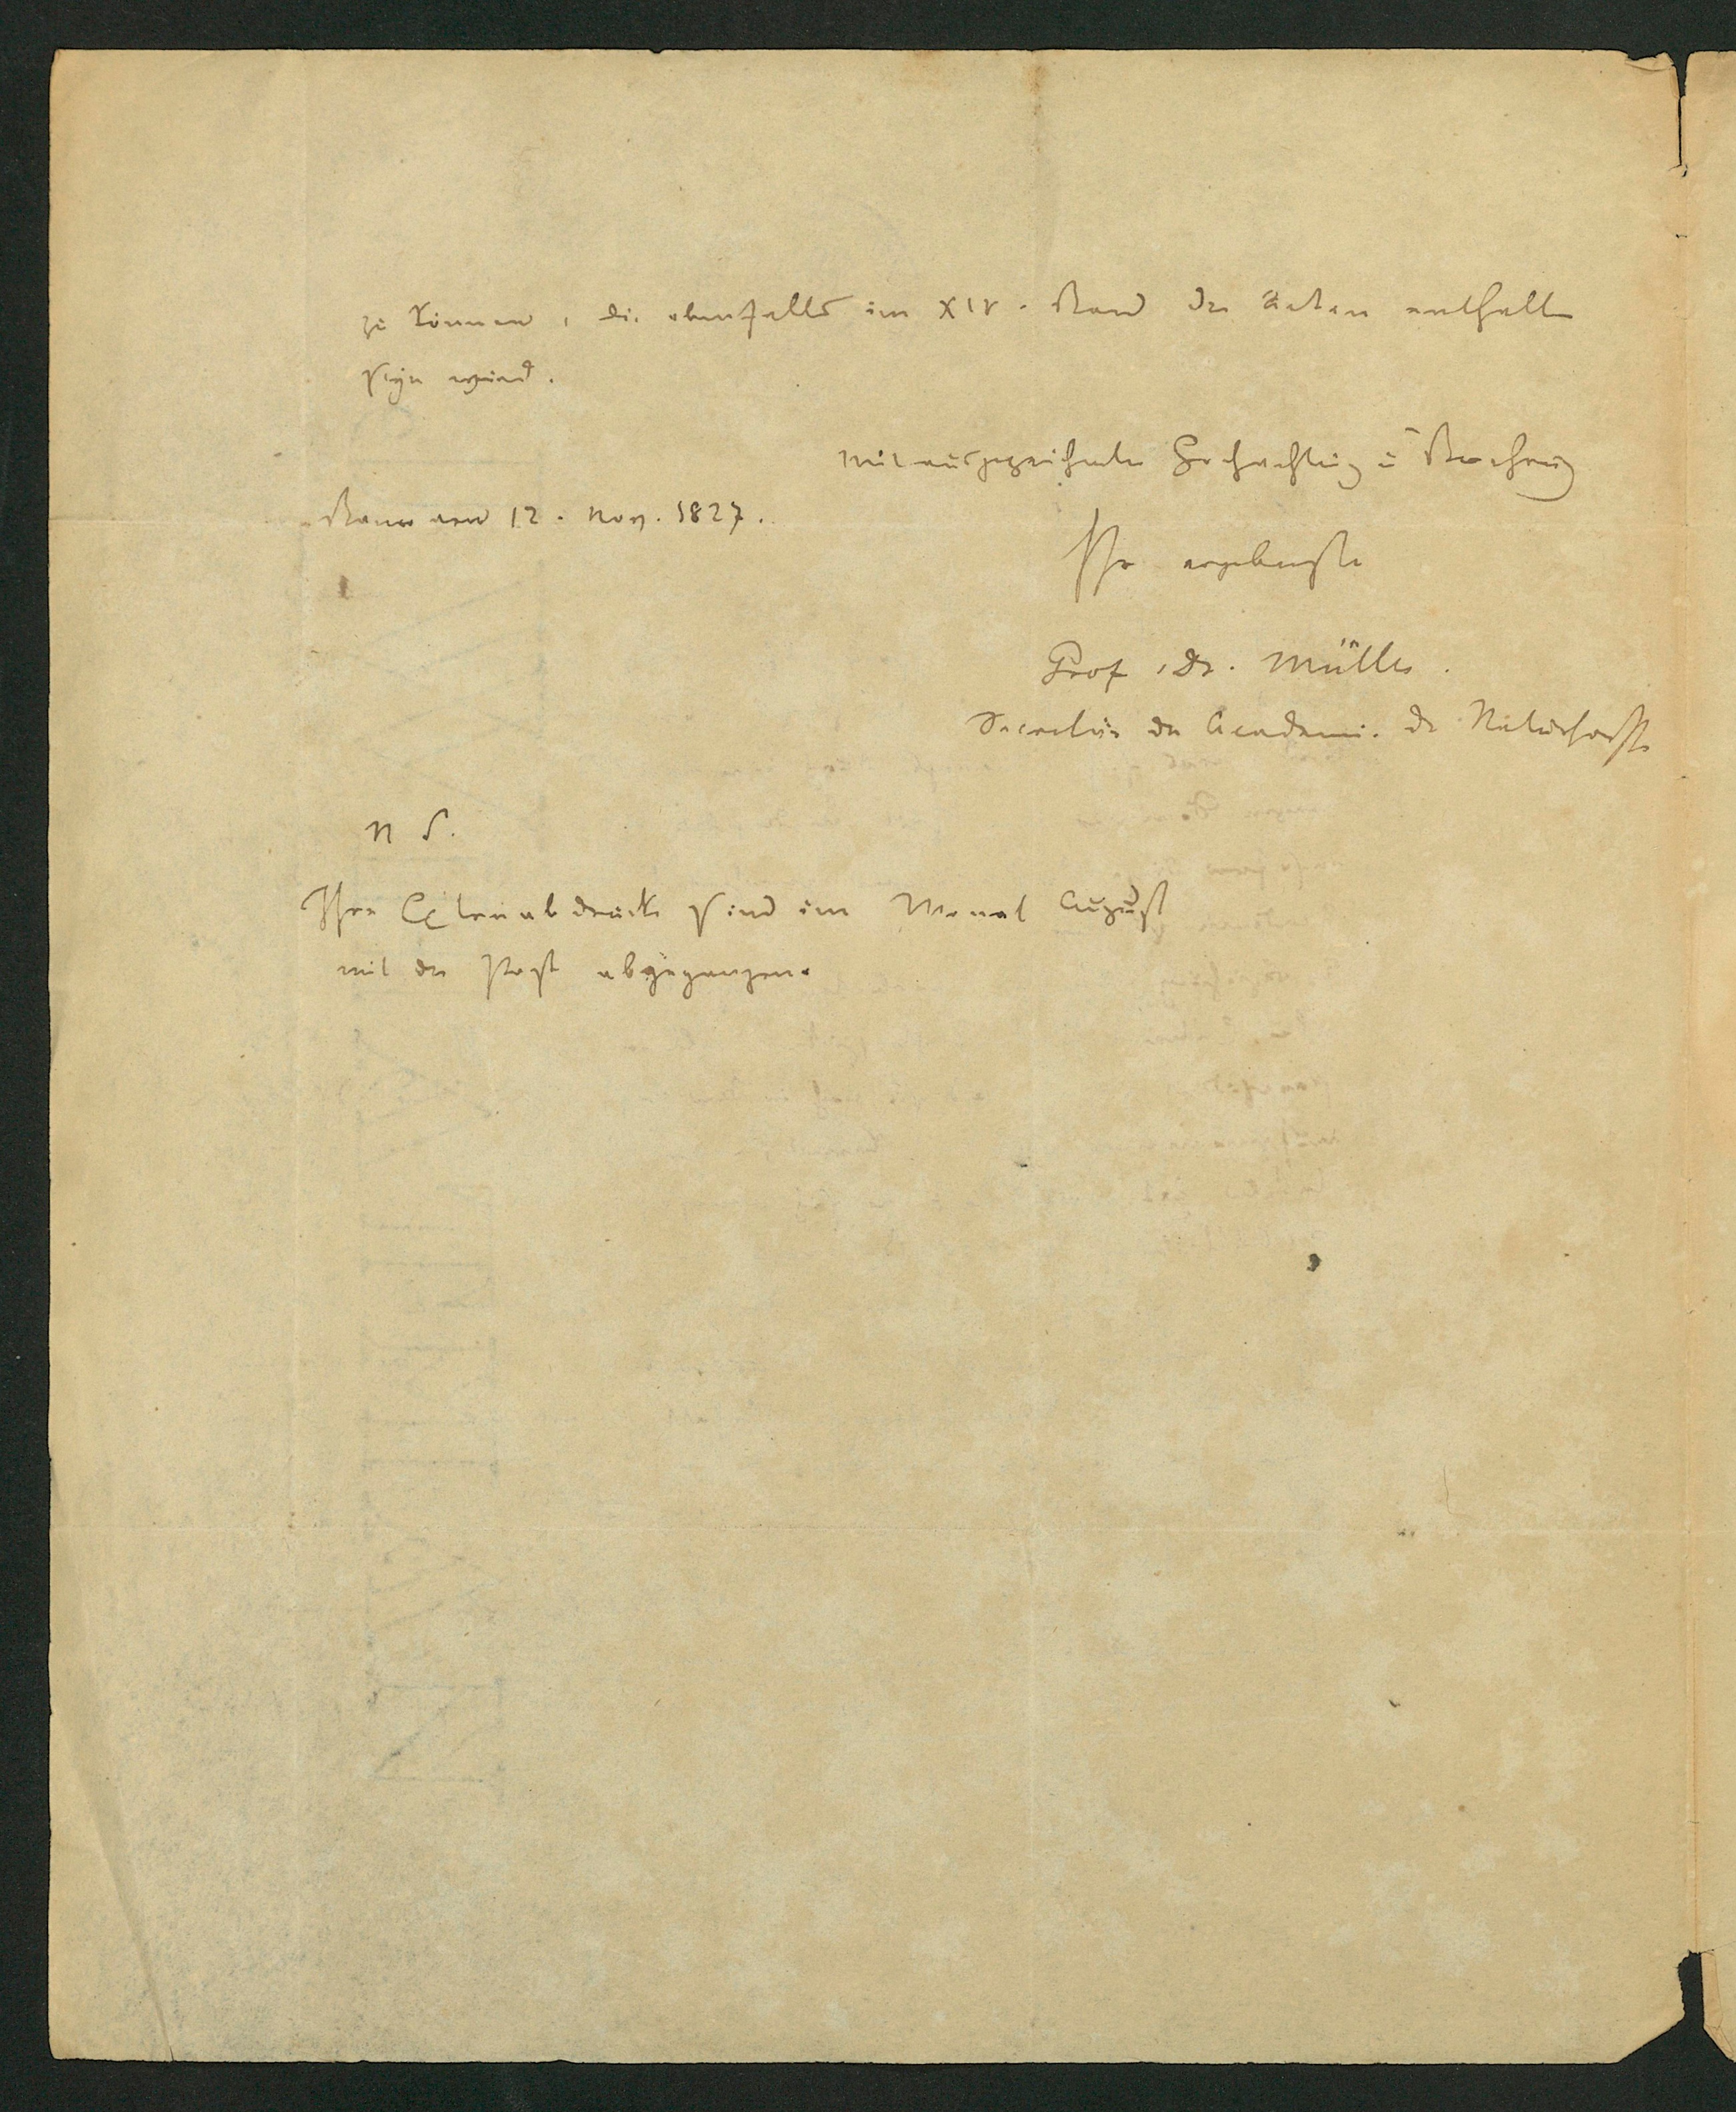 zu können, die ebenfalls im XIV. Band der Acten enthalten
seyn wird.
mit ausgezeichneter Hochachtung u Verehrung
Bonn den 12. Nov. 1827.
Ihr ergebenster
Prof. Dr. Müller.
Secretär der Academie der Naturforscher
N S.
Ihre Extraabdrücke sind im Monat August
mit der Post abgegangen.